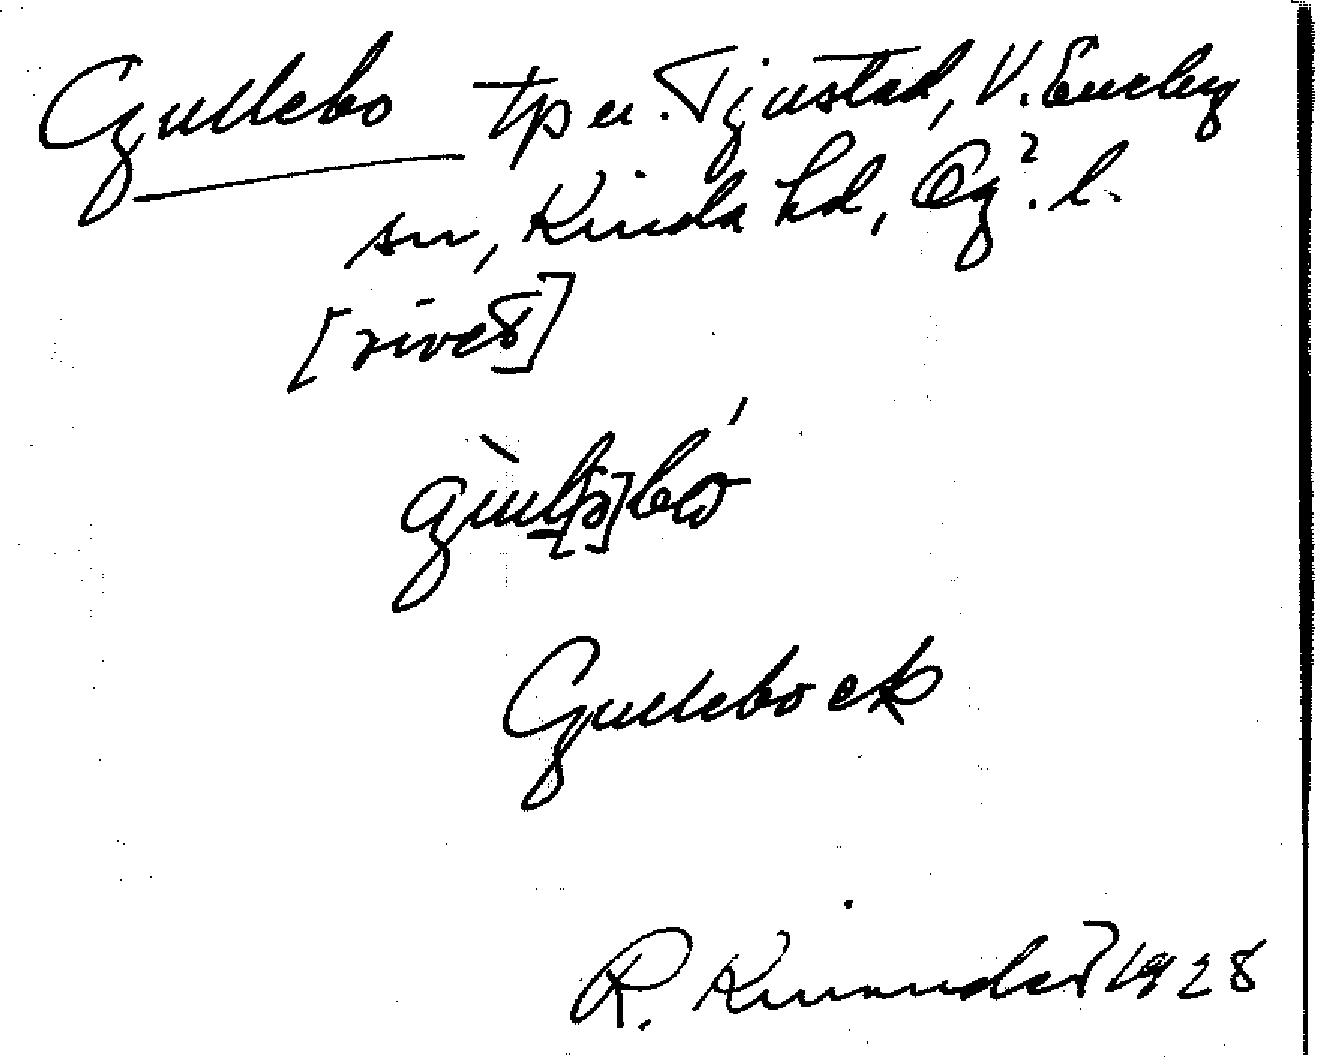 Gullebo tp u. Tjustad, V. Eneby
sn, Kinda hd, Ög. l.
[rivet]
gùl[ə]bó
Gullebock
R. Kinander 1928